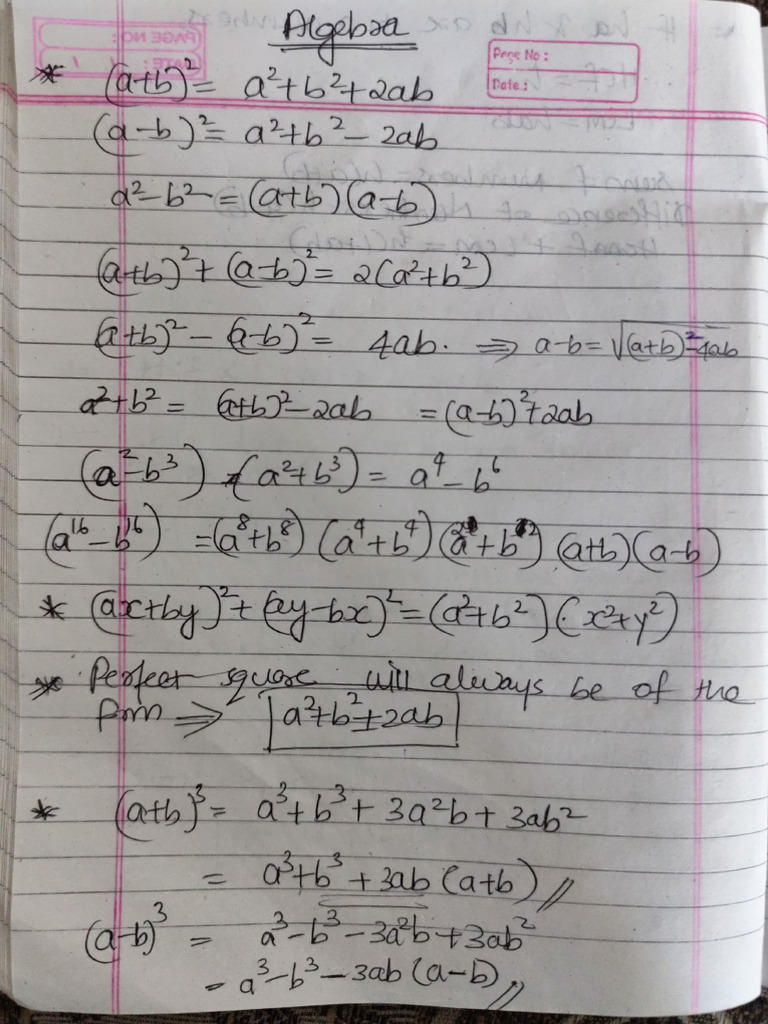 Algebra
Page No:
Date:
* (a+b)² = a²+b²+2ab
(a-b)² = a²+b²-2ab
a²-b² = (a+b)(a-b)
(a+b)²+(a-b)² = 2(a²+b²)
(a+b)² - (a-b)² = 4ab. ⇒ a-b = √(a+b)²-4ab
a²+b² = (a+b)²-2ab = (a-b)²+2ab
(a²-b³) (a²+b³) = a⁴-b⁶
(a¹⁶-b¹⁶) = (a⁸+b⁸) (a⁴+b⁴) (a²+b²) (a+b)(a-b)
* (ax+by)²+(ay-bx)² = (a²+b²)(x²+y²)
* Perfect square will always be of the
form ⇒ a²+b²±2ab
* (a+b)³ = a³+b³+3a²b+3ab²
= a³+b³+3ab(a+b) //
(a-b)³ = a³-b³-3a²b+3ab²
= a³-b³-3ab(a-b) //